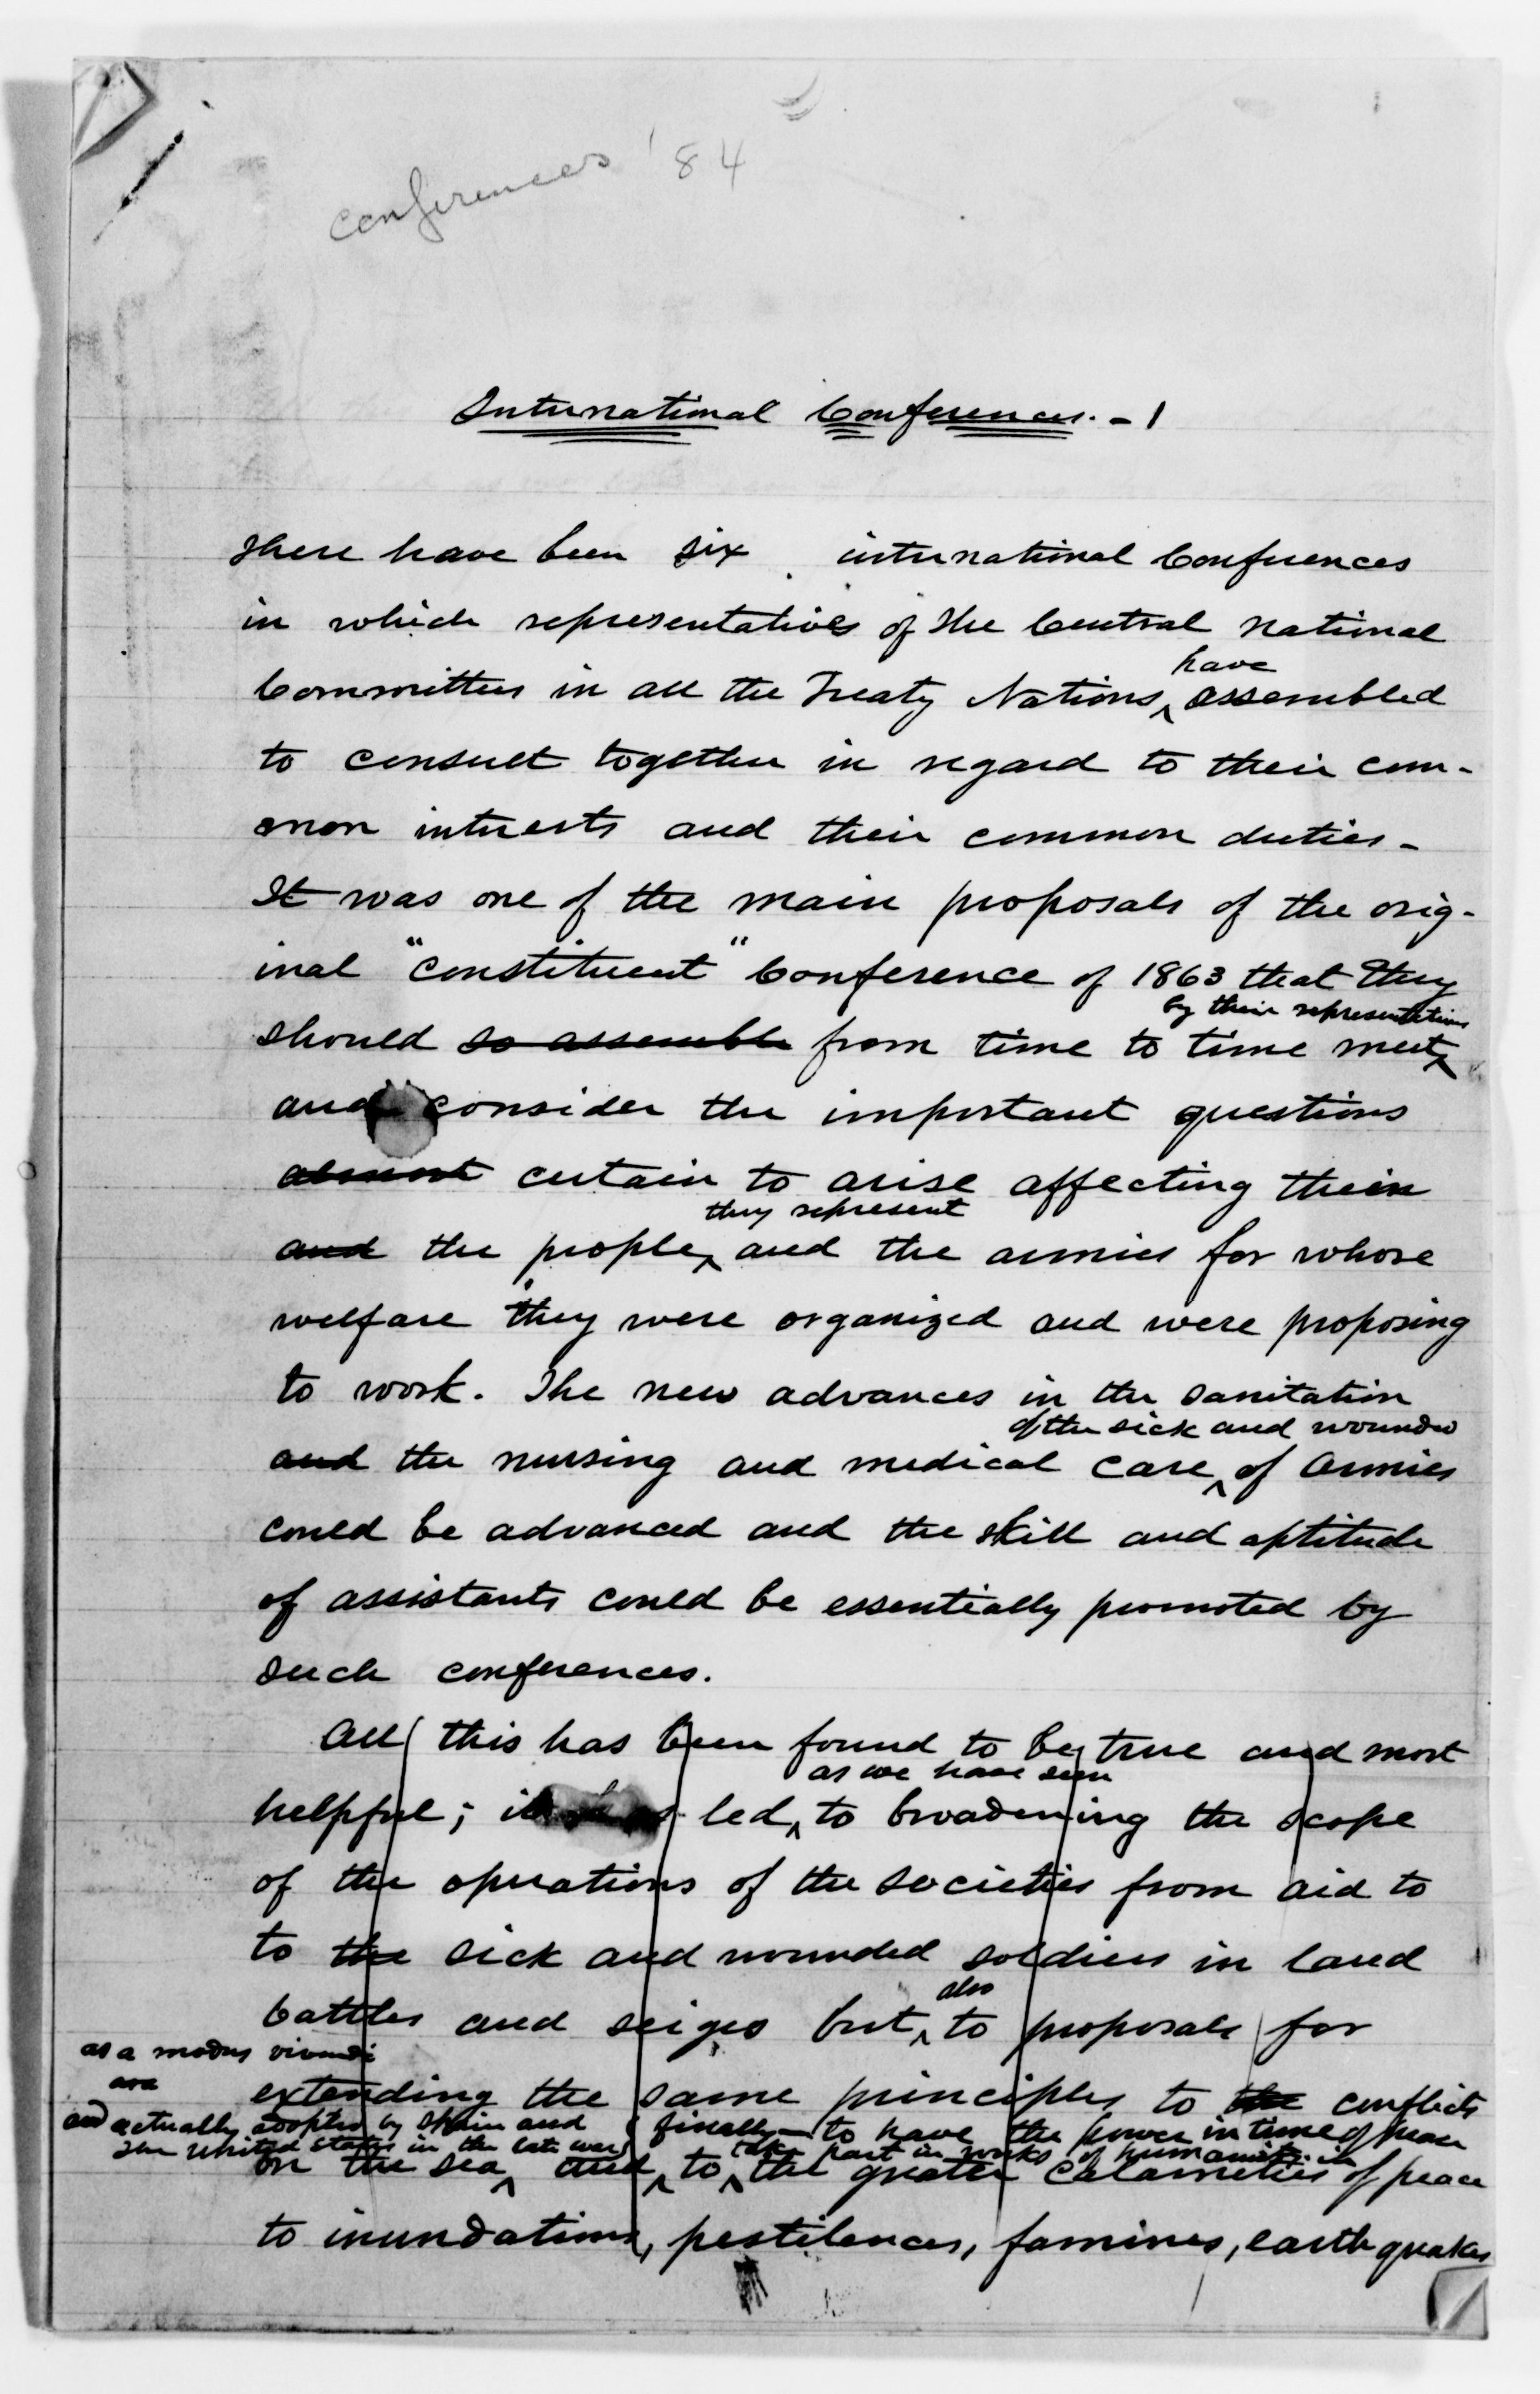 Conferences '84
International Conferences. - 1
There have been six international Conferences
in which representatives of the Central national
have
Committees in all the Treaty Nations, assembled
to consult together in regard to their com-
mon interests and their common duties -
It was one of the main proposals of the orig-
inal "constituent" Conference of 1863 that they
by their representatives
should so assemble from time to time meet
and consider the important questions
almost certain to arise affecting them
they represent
and the people, and the armies for whose
welfare they were organized and were proposing
to work. The new advances in the sanitation
of the sick and wounded
and the nursing and medical care of Armies
could be advanced and the skill and aptitude
of assistants could be essentially promoted by
such conferences.
All this has been found to be true and most
as we have seen
helpful; it has led to broadening the scope
of the operations of the societies from aid to
to the sick and wounded soldiers in land
also
battles and seiges but to proposals for
as a modus vivendi
extending the same principles to the conflicts
and actually adopted by Spain and
finally to have the power in time of peace
the United States in the late war
take part in works of humanity in
on the sea and to the greater calamities of peace
to inundations, pestilences, famines, earthquakes